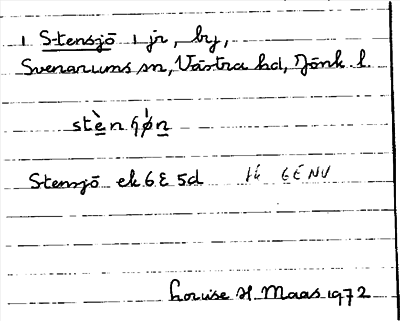 1 Stensjö 1 jr, by,
Svenarums sn, Västra hd, Jönk. l.
stènʃøn
Stensjö ek 6E 5d 7E 6E NV
Louise H. Maas 1972